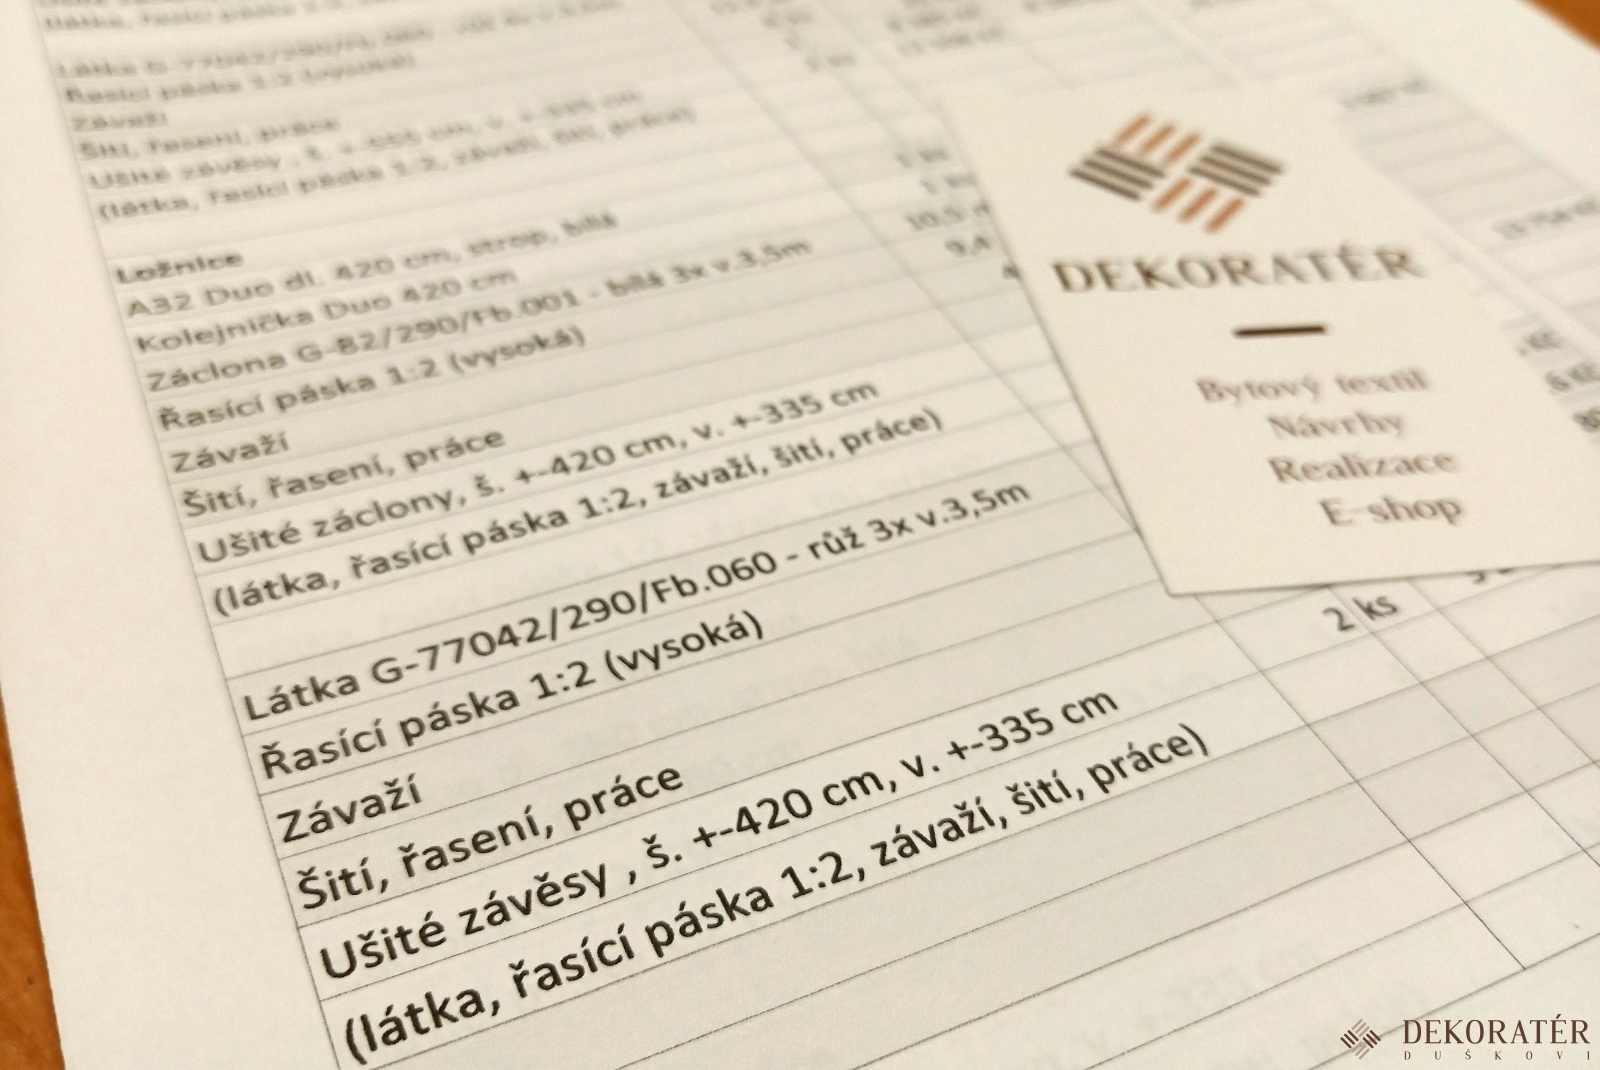 Látka G-77042/290/Fb.060 -
Řasící páska 1:2 (vysoká)
Závaží
Šití, řasení, práce
Ušité závěsy , š. +-555 cm, v. +-335 cm
(látka, řasící páska 1:2, závaží, šití, práce)
Ložnice
A32 Duo dl. 420 cm, strop, bílá
Kolejnička Duo 420 cm
Záclona G-82/290/Fb.001 - bílá 3x v.3,5m
10,5
Řasící páska 1:2 (vysoká)
9,4
Závaží
Šití, řasení, práce
Ušité záclony, š. +-420 cm, v. +-335 cm
(látka, řasící páska 1:2, závaží, šití, práce)
Látka G-77042/290/Fb.060 - růž 3x v.3,5m
Řasící páska 1:2 (vysoká)
Závaží
Šití, řasení, práce
2 ks
Ušité závěsy , š. +-420 cm, v. +-335 cm
(látka, řasící páska 1:2, závaží, šití, práce)
DEKORATÉR
Bytový textil
Návrhy
Realizace
E-shop
DEKORATÉR
DUŠKOVI